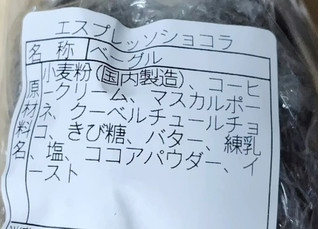 エスプレッソショコラ
名 称 ベーグル
小麦粉(国内製造)、コーヒ
ークリーム、マスカルポー
ネ、クーベルチュールチョ
コ、きび糖、バター、練乳
、塩、ココアパウダー、イ
ースト
原材料名